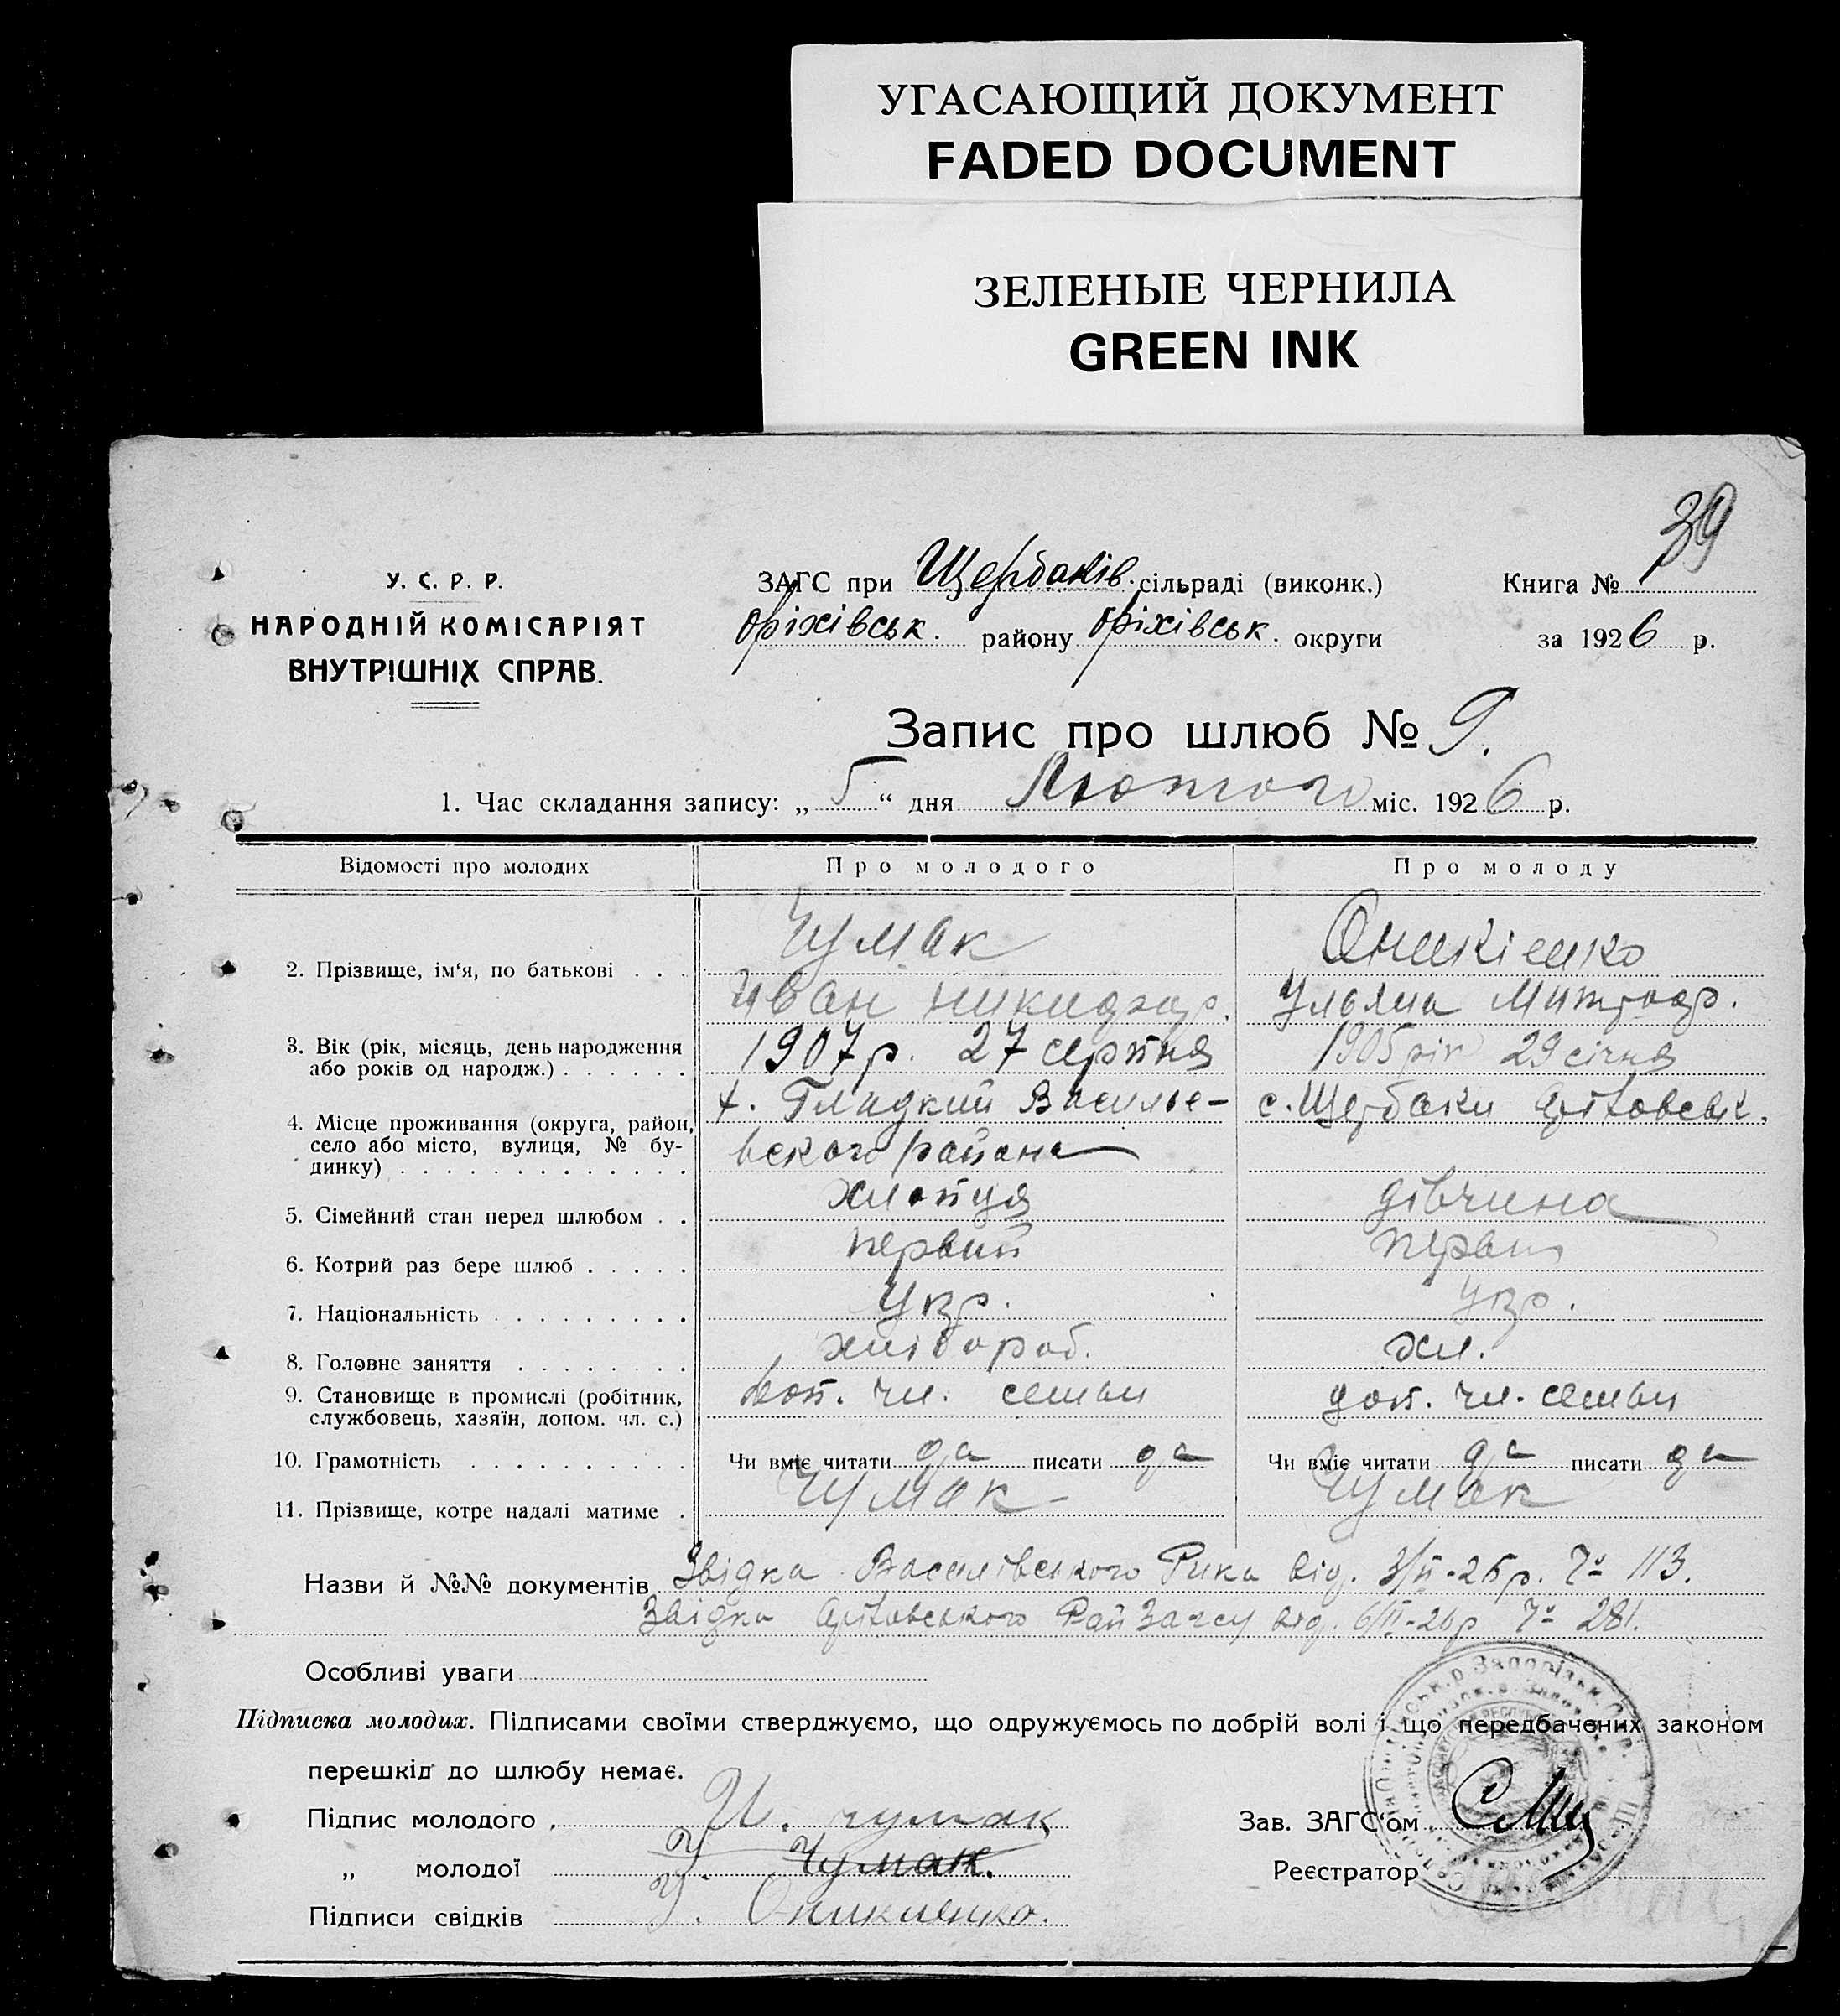 УГАСАЮЩИЙ ДОКУМЕНТ
FADED DOCUMENT
ЗЕЛЕНЫЕ ЧЕРНИЛА
GREEN INK
39
У. С. Р. Р.
НАРОДНІЙ КОМІСАРІЯТ
ВНУТРІШНІХ СПРАВ.
ЗАГС при Щербаків. сільраді (виконк.)
Оріхівськ. району Оріхівськ. округи
Книга №
за 1926 р.
Запис про шлюб № 9.
1. Час складання запису: „ 5 “ дня Лютого міс. 1926 р.
Відомості про молодих Про молодого Про молоду
2. Прізвище, ім‘я, по батькові . . . Чумак Оникіенко
Иван Никидзор. Ульяна Митроф.
3. Вік (рік, місяць, день народження 1907 р. 27 серпня 1905 рік 29 січня
або років од народж.) . . . . . .
4. Місце проживання (округа, район, х. Гладкий Василье- с. Щербаки Оріховськ.
село або місто, вулиця, № бу- вского района
динку) . . . . . . . . . . . . . .
5. Сімейний стан перед шлюбом . . хлопця дівчина
6. Котрий раз бере шлюб . . . . . первий
7. Національність . . . . . . . . . Укр. Укр.
8. Головне заняття . . . . . . . . хлібороб. хл.
9. Становище в промислі (робітник, доп. чл. семьи доп. чл. семьи
службовець, хазяїн, допом. чл. с.)
10. Грамотність . . . . . . . . . . Чи вміє читати да писати да Чи вміє читати да писати да
11. Прізвище, котре надалі матиме . Чумак Чумак
Назви й №№ документів Звідка Василівського Рика від. 3/II-26 р. Ч° 113.
Звідка Оріховського РайЗагсу від. 6/II-26 р Ч° 281.
Особливі уваги
Підписка молодих. Підписами своїми стверджуємо, що одружуємось по добрій волі і що передбачених законом
перешкід до шлюбу немає.
Підпис молодого И. чумак Зав. ЗАГС‘ом
„ молодої У. Чумак. Реєстратор
Підписи свідків У. Оникиенко.